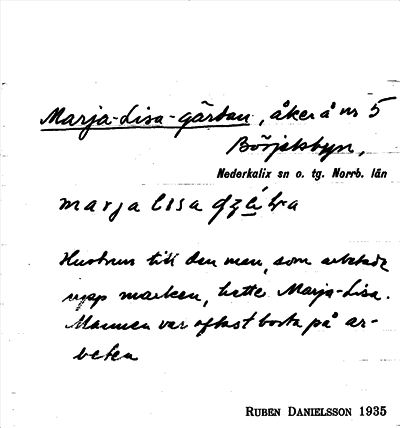 Marja-Lisa-gärdan, åker å nr 5
Börjelsbyn,
Nederkalix sn o. tg. Norrb. län
marja lisa
Hustrun till den man, som arbetade
upp marken, hette Marja-Lisa.
Mannen var oftast borta på ar-
beten
RUBEN DANIELSSON 1935